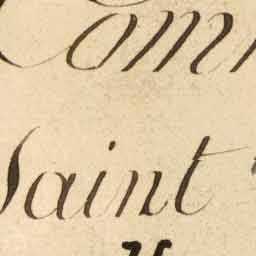 Com
Saint